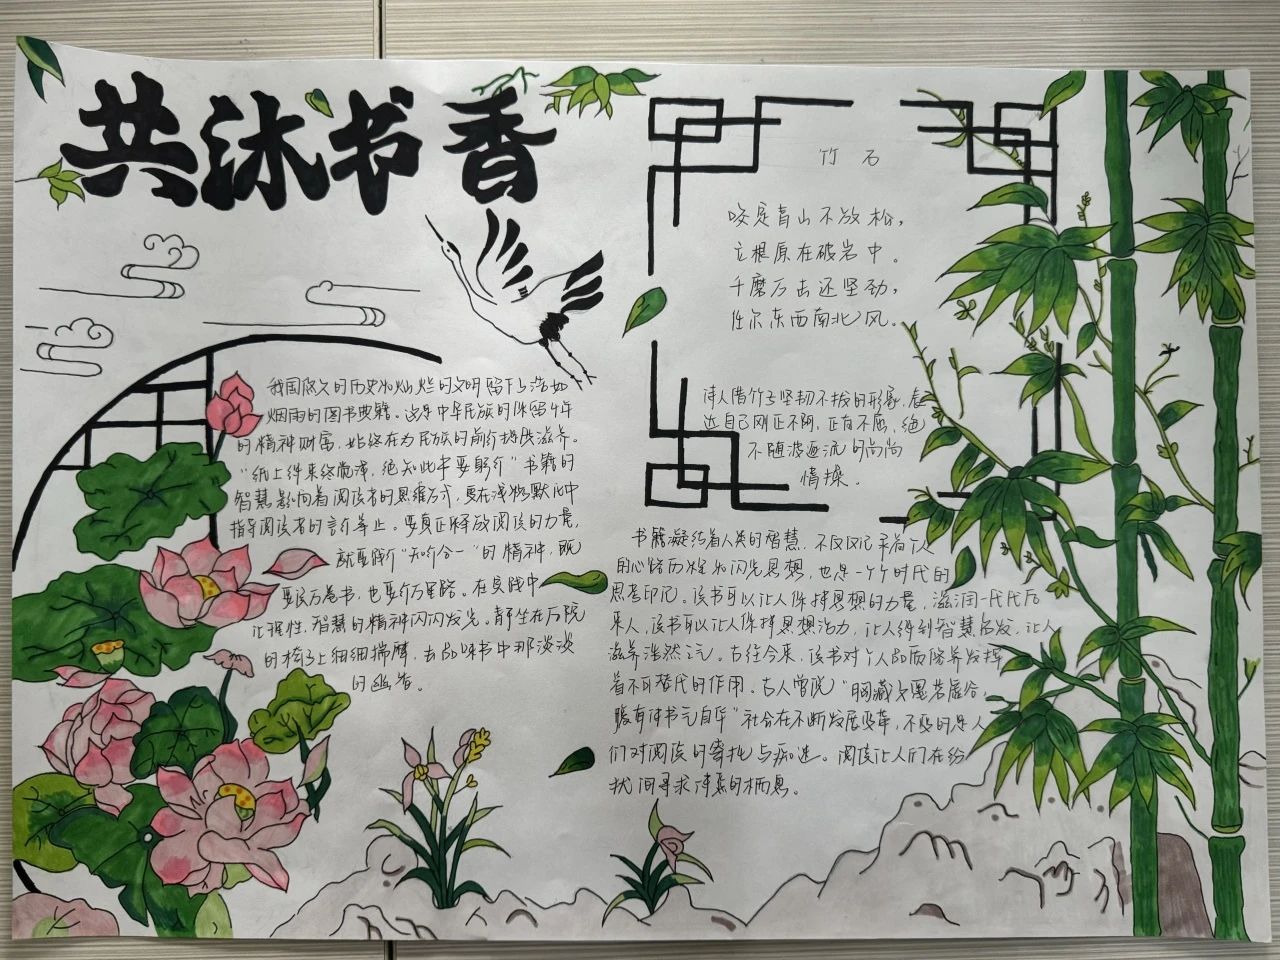 共沐书香
我国悠久的历史和灿烂的文明留下了浩如
烟雨的图书典籍。这是中华民族的保留千年
的精神财富，始终在为民族的前行提供滋养。
“纸上得来终觉浅，绝知此事要躬行”书籍的
智慧影响着阅读者的思维方式，更在潜移默化中
指导阅读者的言行举止。要真正释放阅读的力量，
就要践行“知行合一”的精神，既
要读万卷书，也要行万里路。在实践中
让理性，智慧的精神闪闪发光。静坐在后院
的椅子上细细揣摩，去品味书中那淡淡
的幽香。
竹石
咬定青山不放松，
立根原在破岩中。
千磨万击还坚劲，
任尔东西南北风。
诗人借竹子坚韧不拔的形象，表
达自己刚正不阿，正直不屈，绝
不随波逐流的高尚
情操。
书籍凝结着人类的智慧，不仅仅记录着个人
的心路历程和闪光思想，也是一个个时代的
思考印记。读书可以让人保持思想的力量，滋润一代代后
来人，读书可以让人保持思想活力，让人得到智慧启发，让人
滋养浩然之气。古往今来，读书对个人品质修养发挥
着不可替代的作用。古人曾说“胸藏文墨若虚谷，
腹有诗书气自华”社会在不断发展变革，不变的是人
们对阅读的寄托与痴迷。阅读让人们在纷
扰间寻求诗意的栖息。